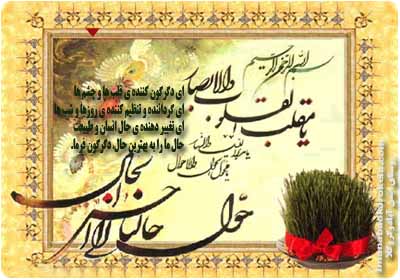 بسم الله الرحمن الرحیم
یا مقلب القلوب والابصار
یا مدبر اللیل والنهار
یا محول الحول والاحوال
حول حالنا الی احسن الحال
ای دگرگون کننده ی قلب ها و چشم ها
ای گرداننده و تنظیم کننده ی روزها و شب ها
ای تغییر دهنده ی حال انسان و طبیعت
حال ما را به بهترین حال، دگرگون فرما.